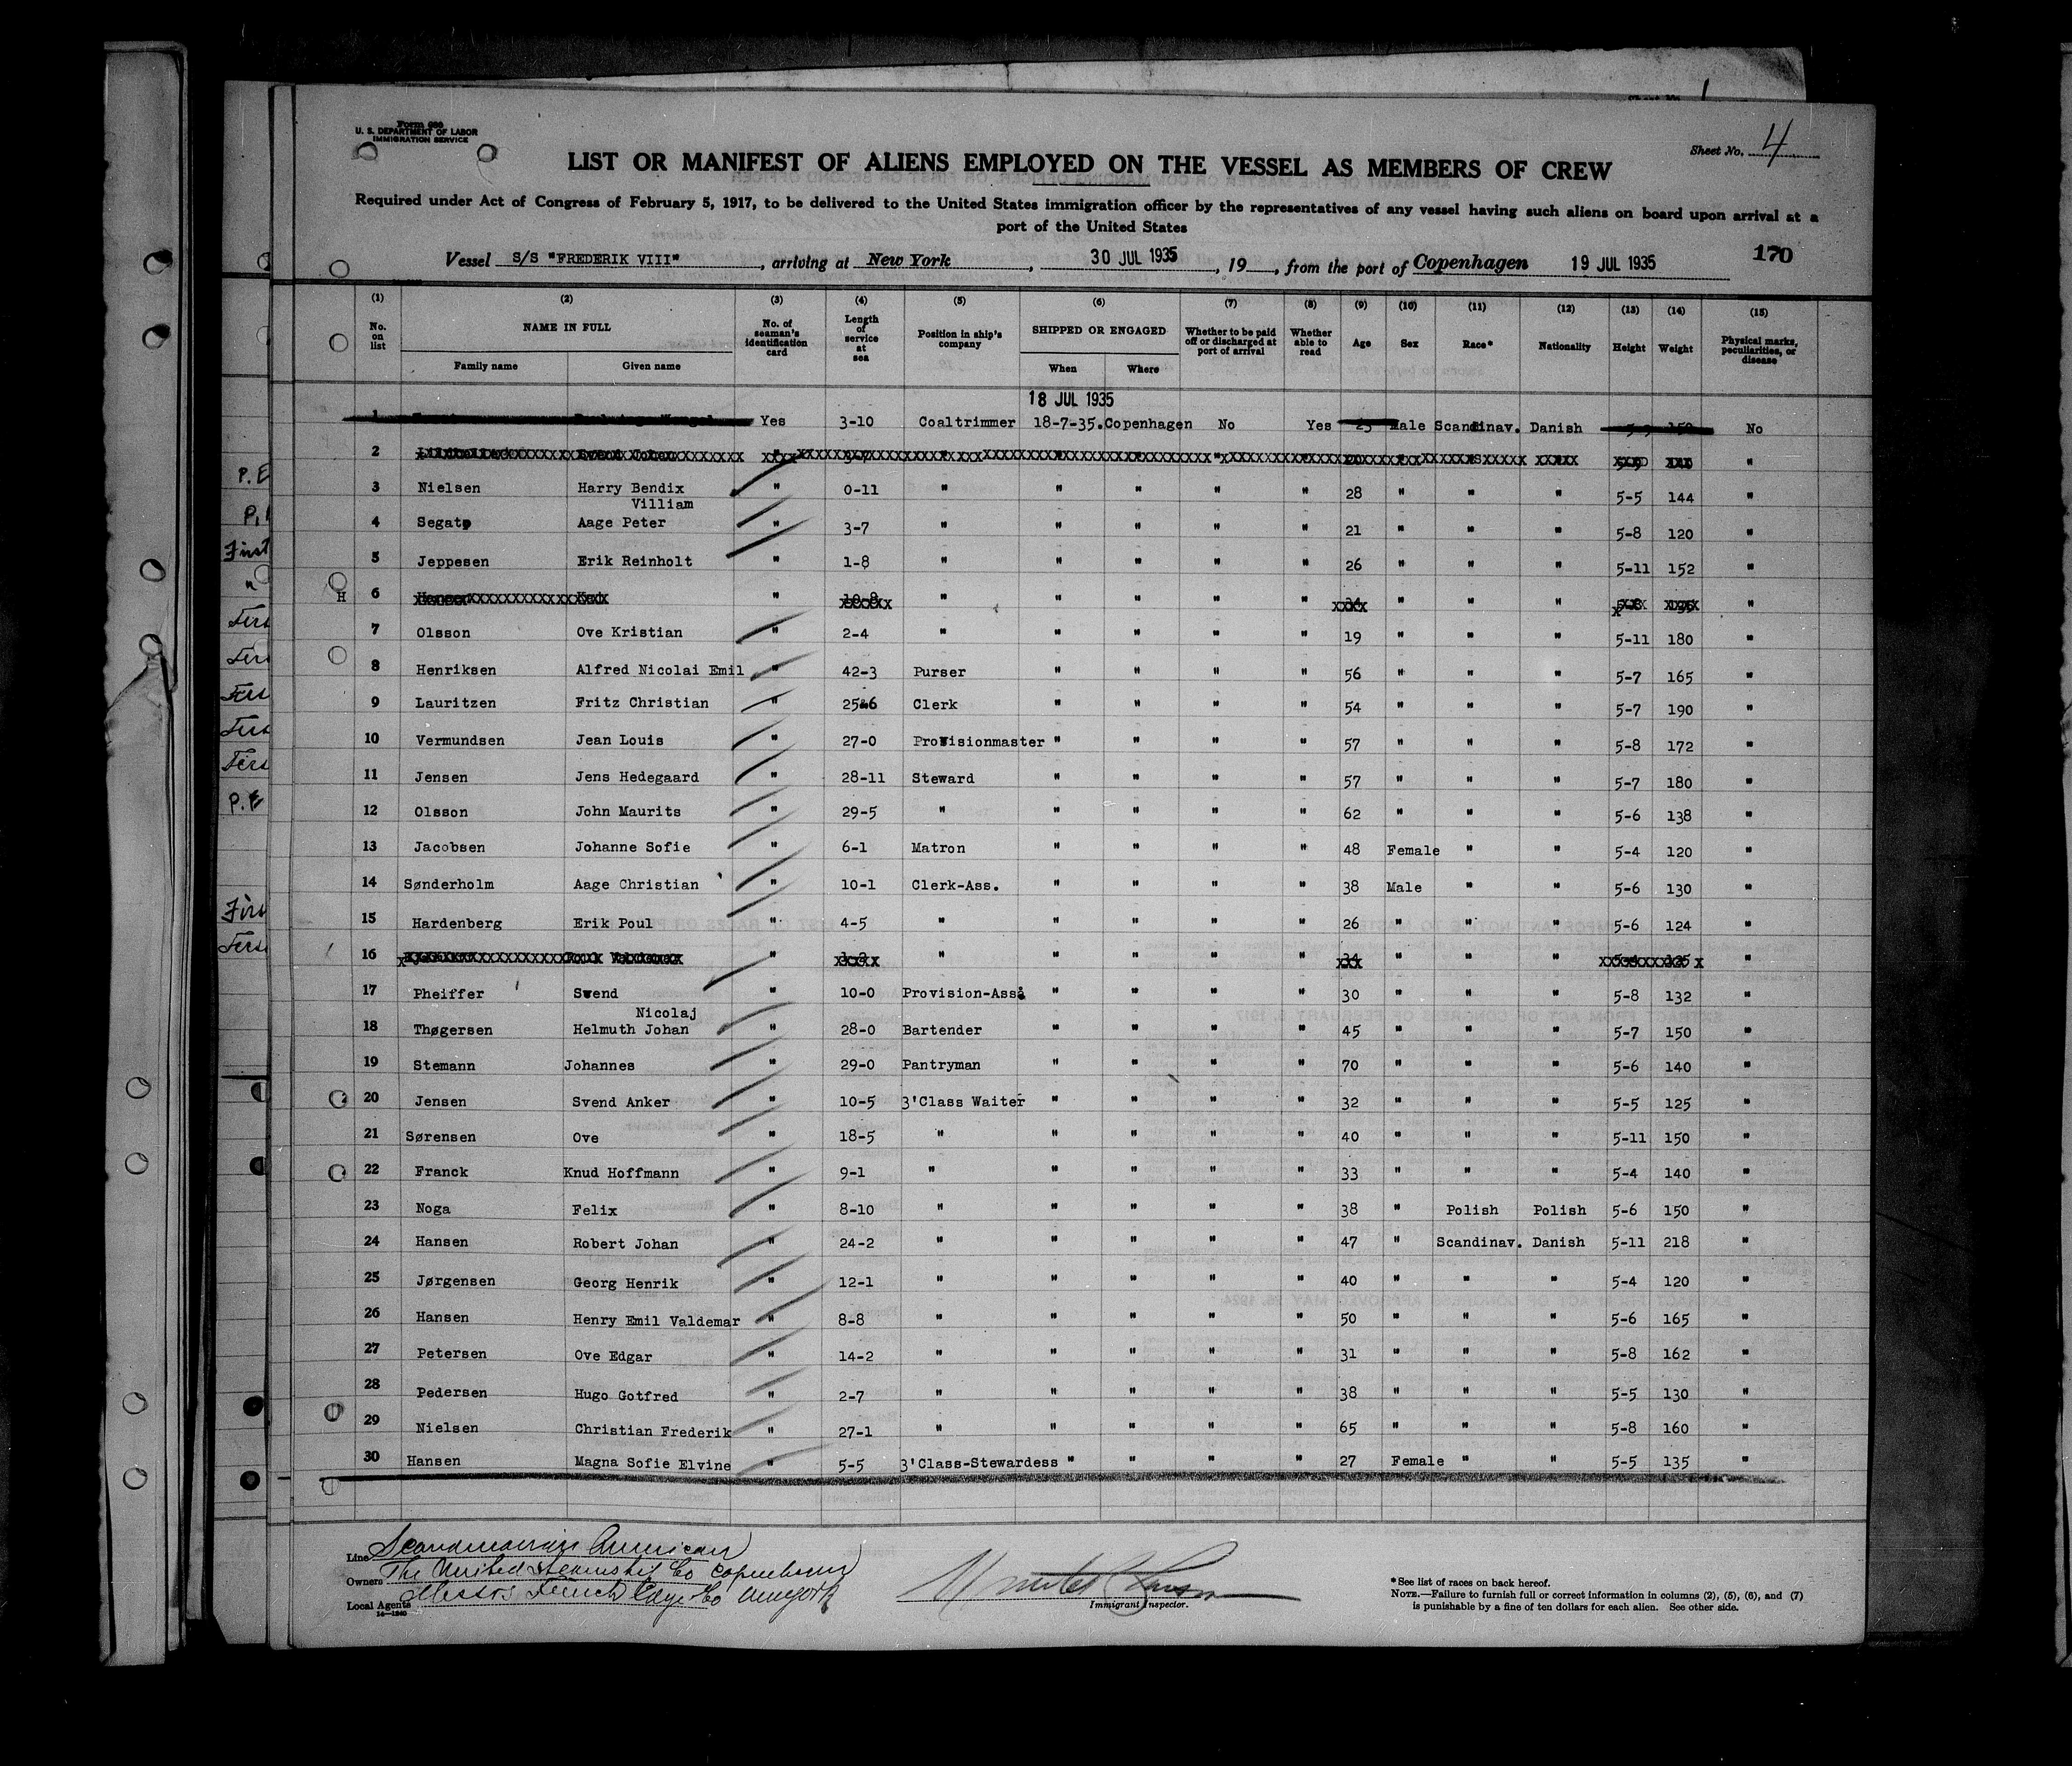 Form 680
U. S. DEPARTMENT OF LABOR
IMMIGRATION SERVICE
Sheet No. 4
LIST OR MANIFEST OF ALIENS EMPLOYED ON THE VESSEL AS MEMBERS OF CREW
Required under Act of Congress of February 5, 1917, to be delivered to the United States immigration officer by the representatives of any vessel having such aliens on board upon arrival at a
port of the United States
Vessel S/S "FREDERIK VIII", arriving at New York, 30 JUL 1935, 19 , from the port of Copenhagen 19 JUL 1935 170
(1) (2) (3) (4) (5) (6) (7) (8) (9) (10) (11) (12) (13) (14) (15)
No. on list NAME IN FULL No. of seaman's identification card Length of service at sea Position in ship's company SHIPPED OR ENGAGED Whether to be paid off or discharged at port of arrival Whether able to read Age Sex Race* Nationality Height Weight Physical marks, peculiarities, or disease
Family name Given name When Where
18 JUL 1935
1 Yes 3-10 Coaltrimmer 18-7-35. Copenhagen No Yes 23 Male Scandinav. Danish No
2 "
3 Nielsen Harry Bendix " 0-11 " " " " " 28 " " " 5-5 144 "
Villiam
4 Segatp Aage Peter " 3-7 " " " " " 21 " " " 5-8 120 "
5 Jeppesen Erik Reinholt " 1-8 " " " " " 26 " " " 5-11 152 "
H 6 " " " " " " " " " "
7 Olsson Ove Kristian " 2-4 " " " " " 19 " " " 5-11 180 "
8 Henriksen Alfred Nicolai Emil " 42-3 Purser " " " " 56 " " " 5-7 165 "
9 Lauritzen Fritz Christian " 25-6 Clerk " " " " 54 " " " 5-7 190 "
10 Vermundsen Jean Louis " 27-0 Provisionmaster " " " " 57 " " " 5-8 172 "
11 Jensen Jens Hedegaard " 28-11 Steward " " " " 57 " " " 5-7 180 "
12 Olsson John Maurits " 29-5 " " " " " 62 " " " 5-6 138 "
13 Jacobsen Johanne Sofie " 6-1 Matron " " " " 48 Female " " 5-4 120 "
14 Sønderholm Aage Christian " 10-1 Clerk-Ass. " " " " 38 Male " " 5-6 130 "
15 Hardenberg Erik Poul " 4-5 " " " " " 26 " " " 5-6 124 "
16 " " " " " " " " " "
17 Pheiffer Svend " 10-0 Provision-Ass. " " " " 30 " " " 5-8 132 "
Nicolaj
18 Thøgersen Helmuth Johan " 28-0 Bartender " " " " 45 " " " 5-7 150 "
19 Stemann Johannes " 29-0 Pantryman " " " " 70 " " " 5-6 140 "
20 Jensen Svend Anker " 10-5 3'Class Waiter " " " " 32 " " " 5-5 125 "
21 Sørensen Ove " 18-5 " " " " " 40 " " " 5-11 150 "
22 Franck Knud Hoffmann " 9-1 " " " " " 33 " " " 5-4 140 "
23 Noga Felix " 8-10 " " " " " 38 " Polish Polish 5-6 150 "
24 Hansen Robert Johan " 24-2 " " " " " 47 " Scandinav. Danish 5-11 218 "
25 Jørgensen Georg Henrik " 12-1 " " " " " 40 " " " 5-4 120 "
26 Hansen Henry Emil Valdemar " 8-8 " " " " " 50 " " " 5-6 165 "
27 Petersen Ove Edgar " 14-2 " " " " " 31 " " " 5-8 162 "
28 Pedersen Hugo Gotfred " 2-7 " " " " " 38 " " " 5-5 130 "
29 Nielsen Christian Frederik " 27-1 " " " " " 65 " " " 5-8 160 "
30 Hansen Magna Sofie Elvine " 5-5 3'Class-Stewardess " " " " 27 Female " " 5-5 135 "
Line Scandinavian American
Owners The United Steamship Co Copenhagen
Local Agents Messrs Funch Edye Co New York
14-1240
Immigrant Inspector.
*See list of races on back hereof.
NOTE.—Failure to furnish full or correct information in columns (2), (5), (6), and (7)
is punishable by a fine of ten dollars for each alien. See other side.